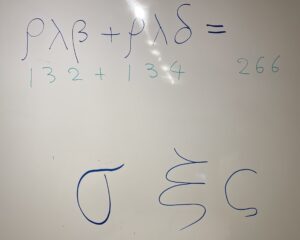 ρλβ + ρλδ =
132 + 134 266
σ ξ ς